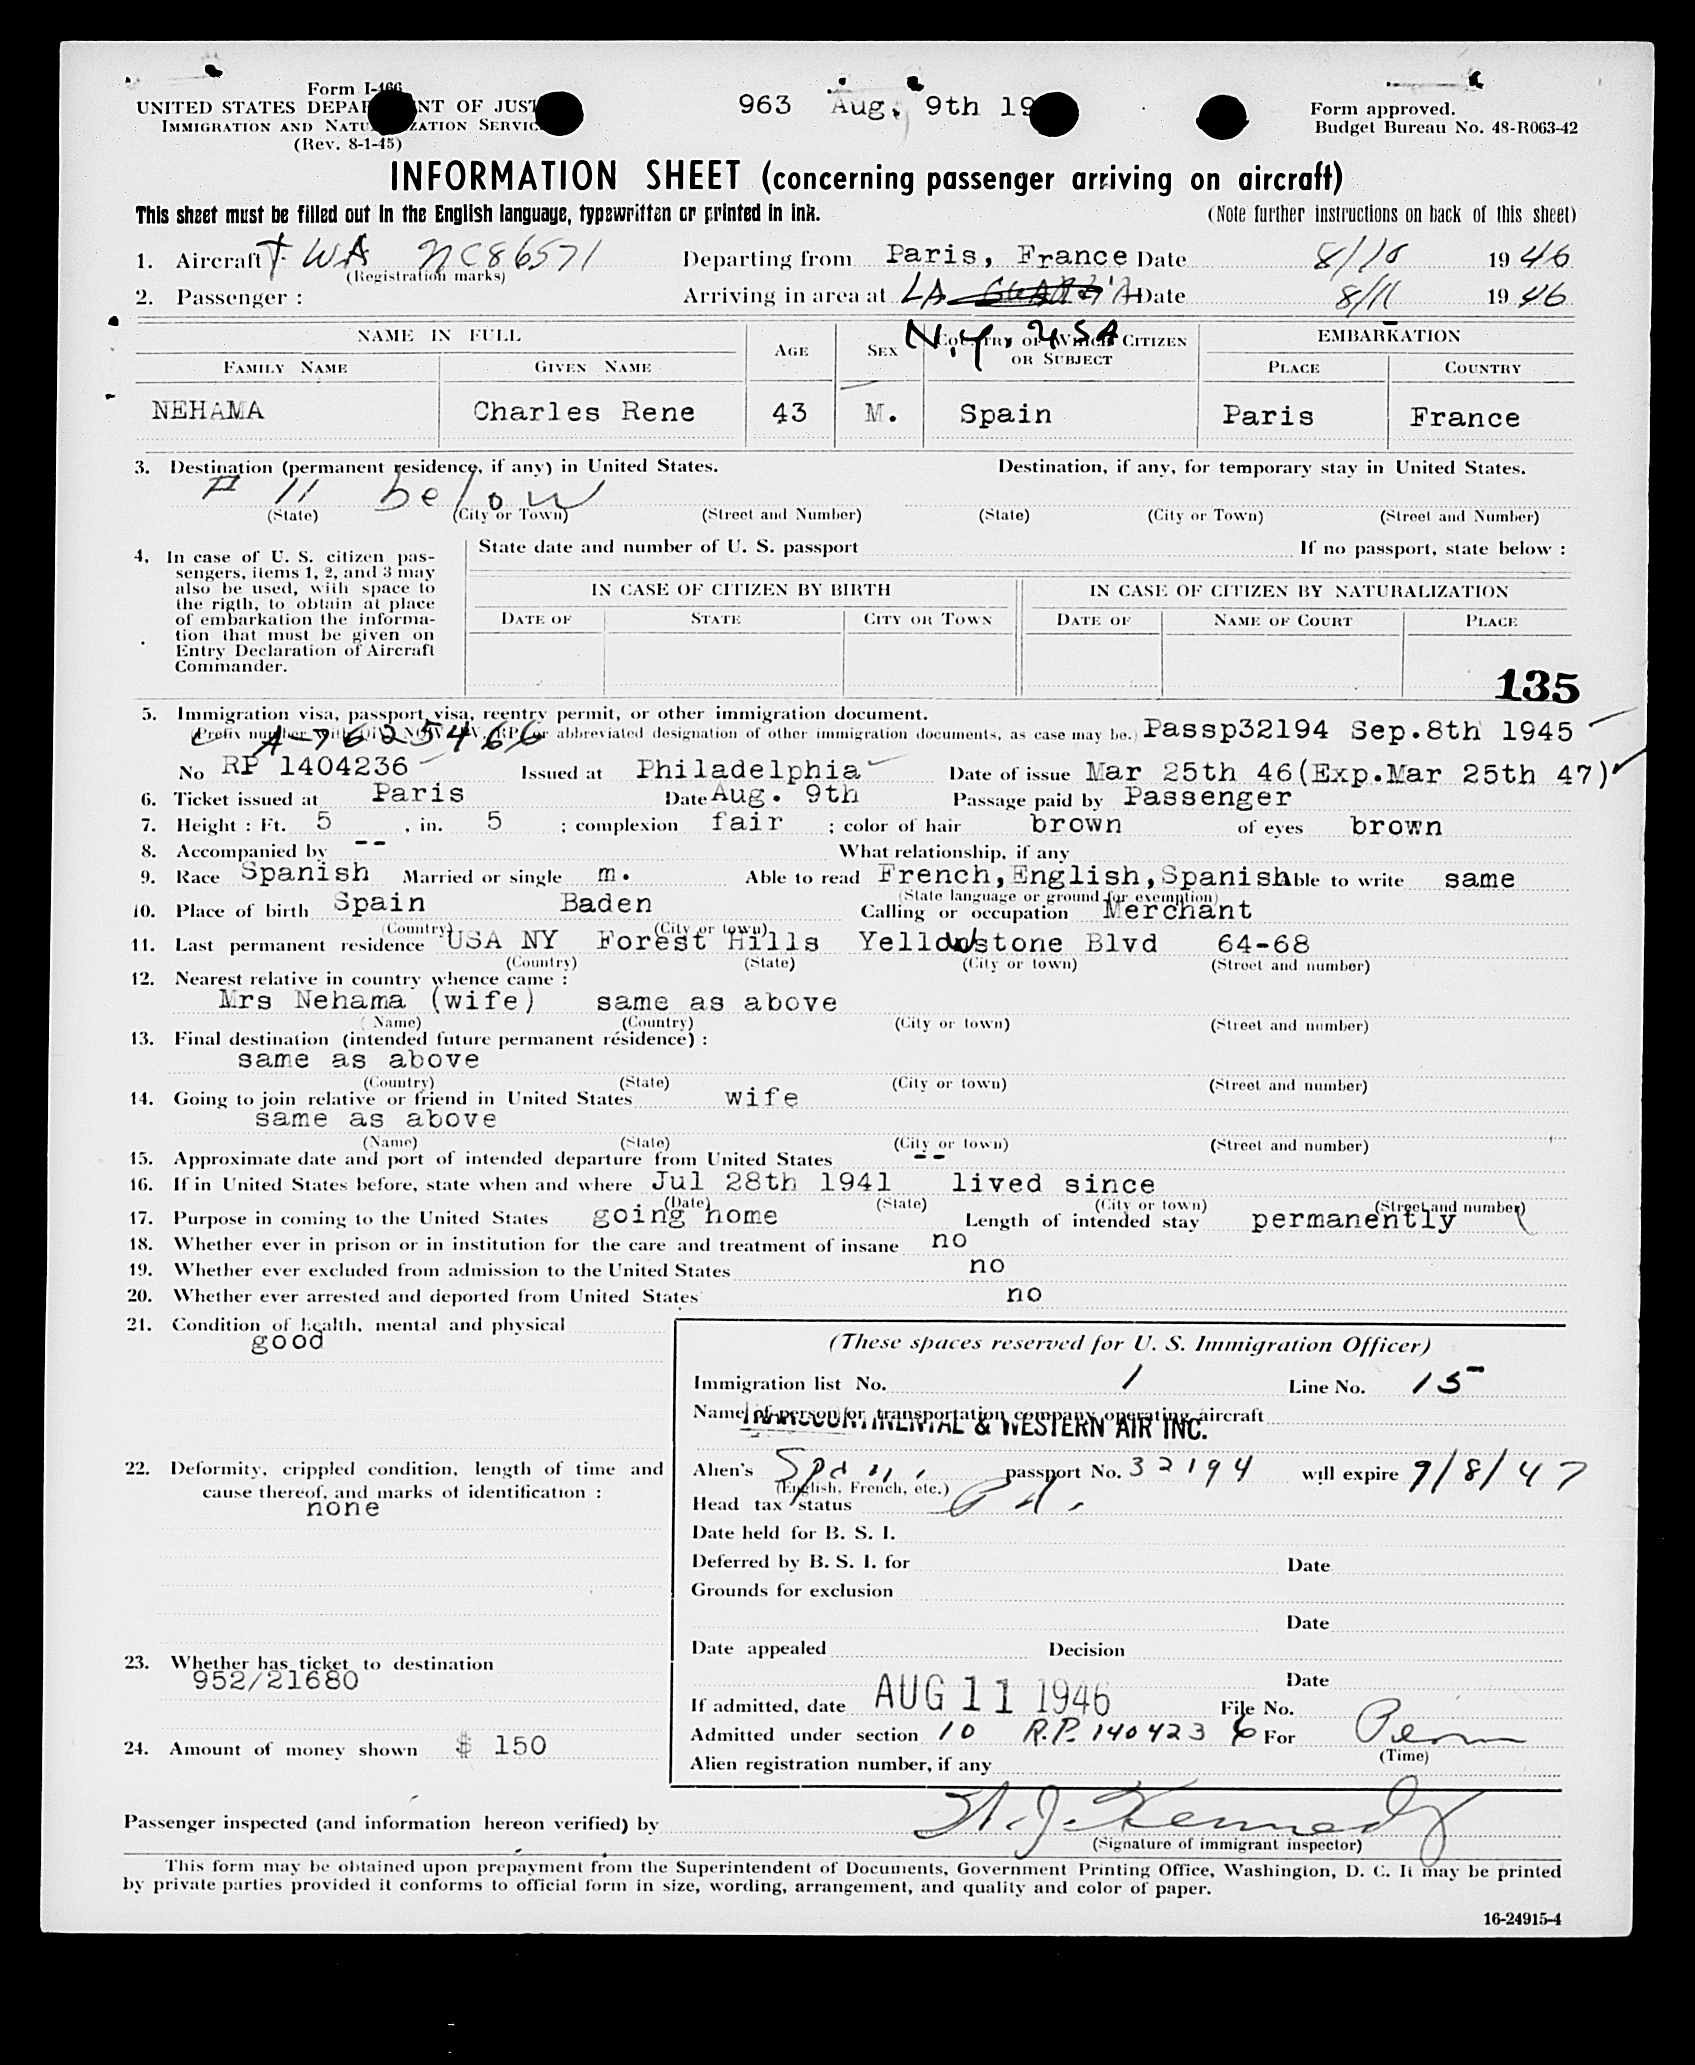 Form I-466
UNITED STATES DEPARTMENT OF JUSTICE
IMMIGRATION AND NATURALIZATION SERVICE
(Rev. 8-1-45)
963 Aug. 9th 19
Form approved.
Budget Bureau No. 48-R063-42
INFORMATION SHEET (concerning passenger arriving on aircraft)
This sheet must be filled out in the English language, typewritten or printed in ink.
(Note further instructions on back of this sheet)
1. Aircraft T. WA NC86571 Departing from Paris, France Date 8/10 1946
(Registration marks)
2. Passenger : Arriving in area at LA GUARDIA Date 8/11 1946
N.Y. USA
NAME IN FULL AGE SEX COUNTRY OF WHICH CITIZEN OR SUBJECT EMBARKATION
FAMILY NAME GIVEN NAME PLACE COUNTRY
NEHAMA Charles Rene 43 M. Spain Paris France
3. Destination (permanent residence, if any) in United States. Destination, if any, for temporary stay in United States.
# 11 below
(State) (City or Town) (Street and Number) (State) (City or Town) (Street and Number)
4. In case of U. S. citizen pas-
sengers, items 1, 2, and 3 may
also be used, with space to
the rigth, to obtain at place
of embarkation the informa-
tion that must be given on
Entry Declaration of Aircraft
Commander.
State date and number of U. S. passport If no passport, state below :
IN CASE OF CITIZEN BY BIRTH IN CASE OF CITIZEN BY NATURALIZATION
DATE OF STATE CITY OR TOWN DATE OF NAME OF COURT PLACE
135
5. Immigration visa, passport visa, reentry permit, or other immigration document.
(Prefix number with QIV, NQIV, PV, RP, or abbreviated designation of other immigration documents, as case may be.) Passp32194 Sep.8th 1945
A-7625466
No RP 1404236 Issued at Philadelphia Date of issue Mar 25th 46(Exp.Mar 25th 47)
6. Ticket issued at Paris Date Aug. 9th Passage paid by Passenger
7. Height : Ft. 5 , in. 5 ; complexion fair ; color of hair brown of eyes brown
8. Accompanied by -- What relationship, if any
9. Race Spanish Married or single m. Able to read French,English,Spanish Able to write same
(State language or ground for exemption)
10. Place of birth Spain Baden Calling or occupation Merchant
(Country) (City or town)
11. Last permanent residence USA NY Forest Hills Yellowstone Blvd 64-68
(Country) (State) (City or town) (Street and number)
12. Nearest relative in country whence came :
Mrs Nehama (wife) same as above
(Name) (Country) (City or town) (Street and number)
13. Final destination (intended future permanent résidence) :
same as above
(Country) (State) (City or town) (Street and number)
14. Going to join relative or friend in United States wife
same as above
(Name) (State) (City or town) (Street and number)
15. Approximate date and port of intended departure from United States --
16. If in United States before, state when and where Jul 28th 1941 lived since
(Date) (State) (City or town) (Street and number)
17. Purpose in coming to the United States going home Length of intended stay permanently
18. Whether ever in prison or in institution for the care and treatment of insane no
19. Whether ever excluded from admission to the United States no
20. Whether ever arrested and deported from United States no
21. Condition of health, mental and physical
good
(These spaces reserved for U. S. Immigration Officer)
Immigration list No. 1 Line No. 15
Name of person or transportation company operating aircraft
TRANSCONTINENTAL & WESTERN AIR INC.
22. Deformity, crippled condition, length of time and
cause thereof, and marks of identification :
none
Alien's Span. passport No. 32194 will expire 9/8/47
(English, French, etc.)
Head tax status Pd.
Date held for B. S. I.
Deferred by B. S. I. for Date
Grounds for exclusion
Date
Date appealed Decision
23. Whether has ticket to destination
952/21680
Date
If admitted, date AUG 11 1946 File No.
Admitted under section 10 R.P. 1404236 For Perm
(Time)
24. Amount of money shown $ 150
Alien registration number, if any
Passenger inspected (and information hereon verified) by Kennedy
(Signature of immigrant inspector)
This form may be obtained upon prepayment from the Superintendent of Documents, Government Printing Office, Washington, D. C. It may be printed
by private parties provided it conforms to official form in size, wording, arrangement, and quality and color of paper.
16-24915-4